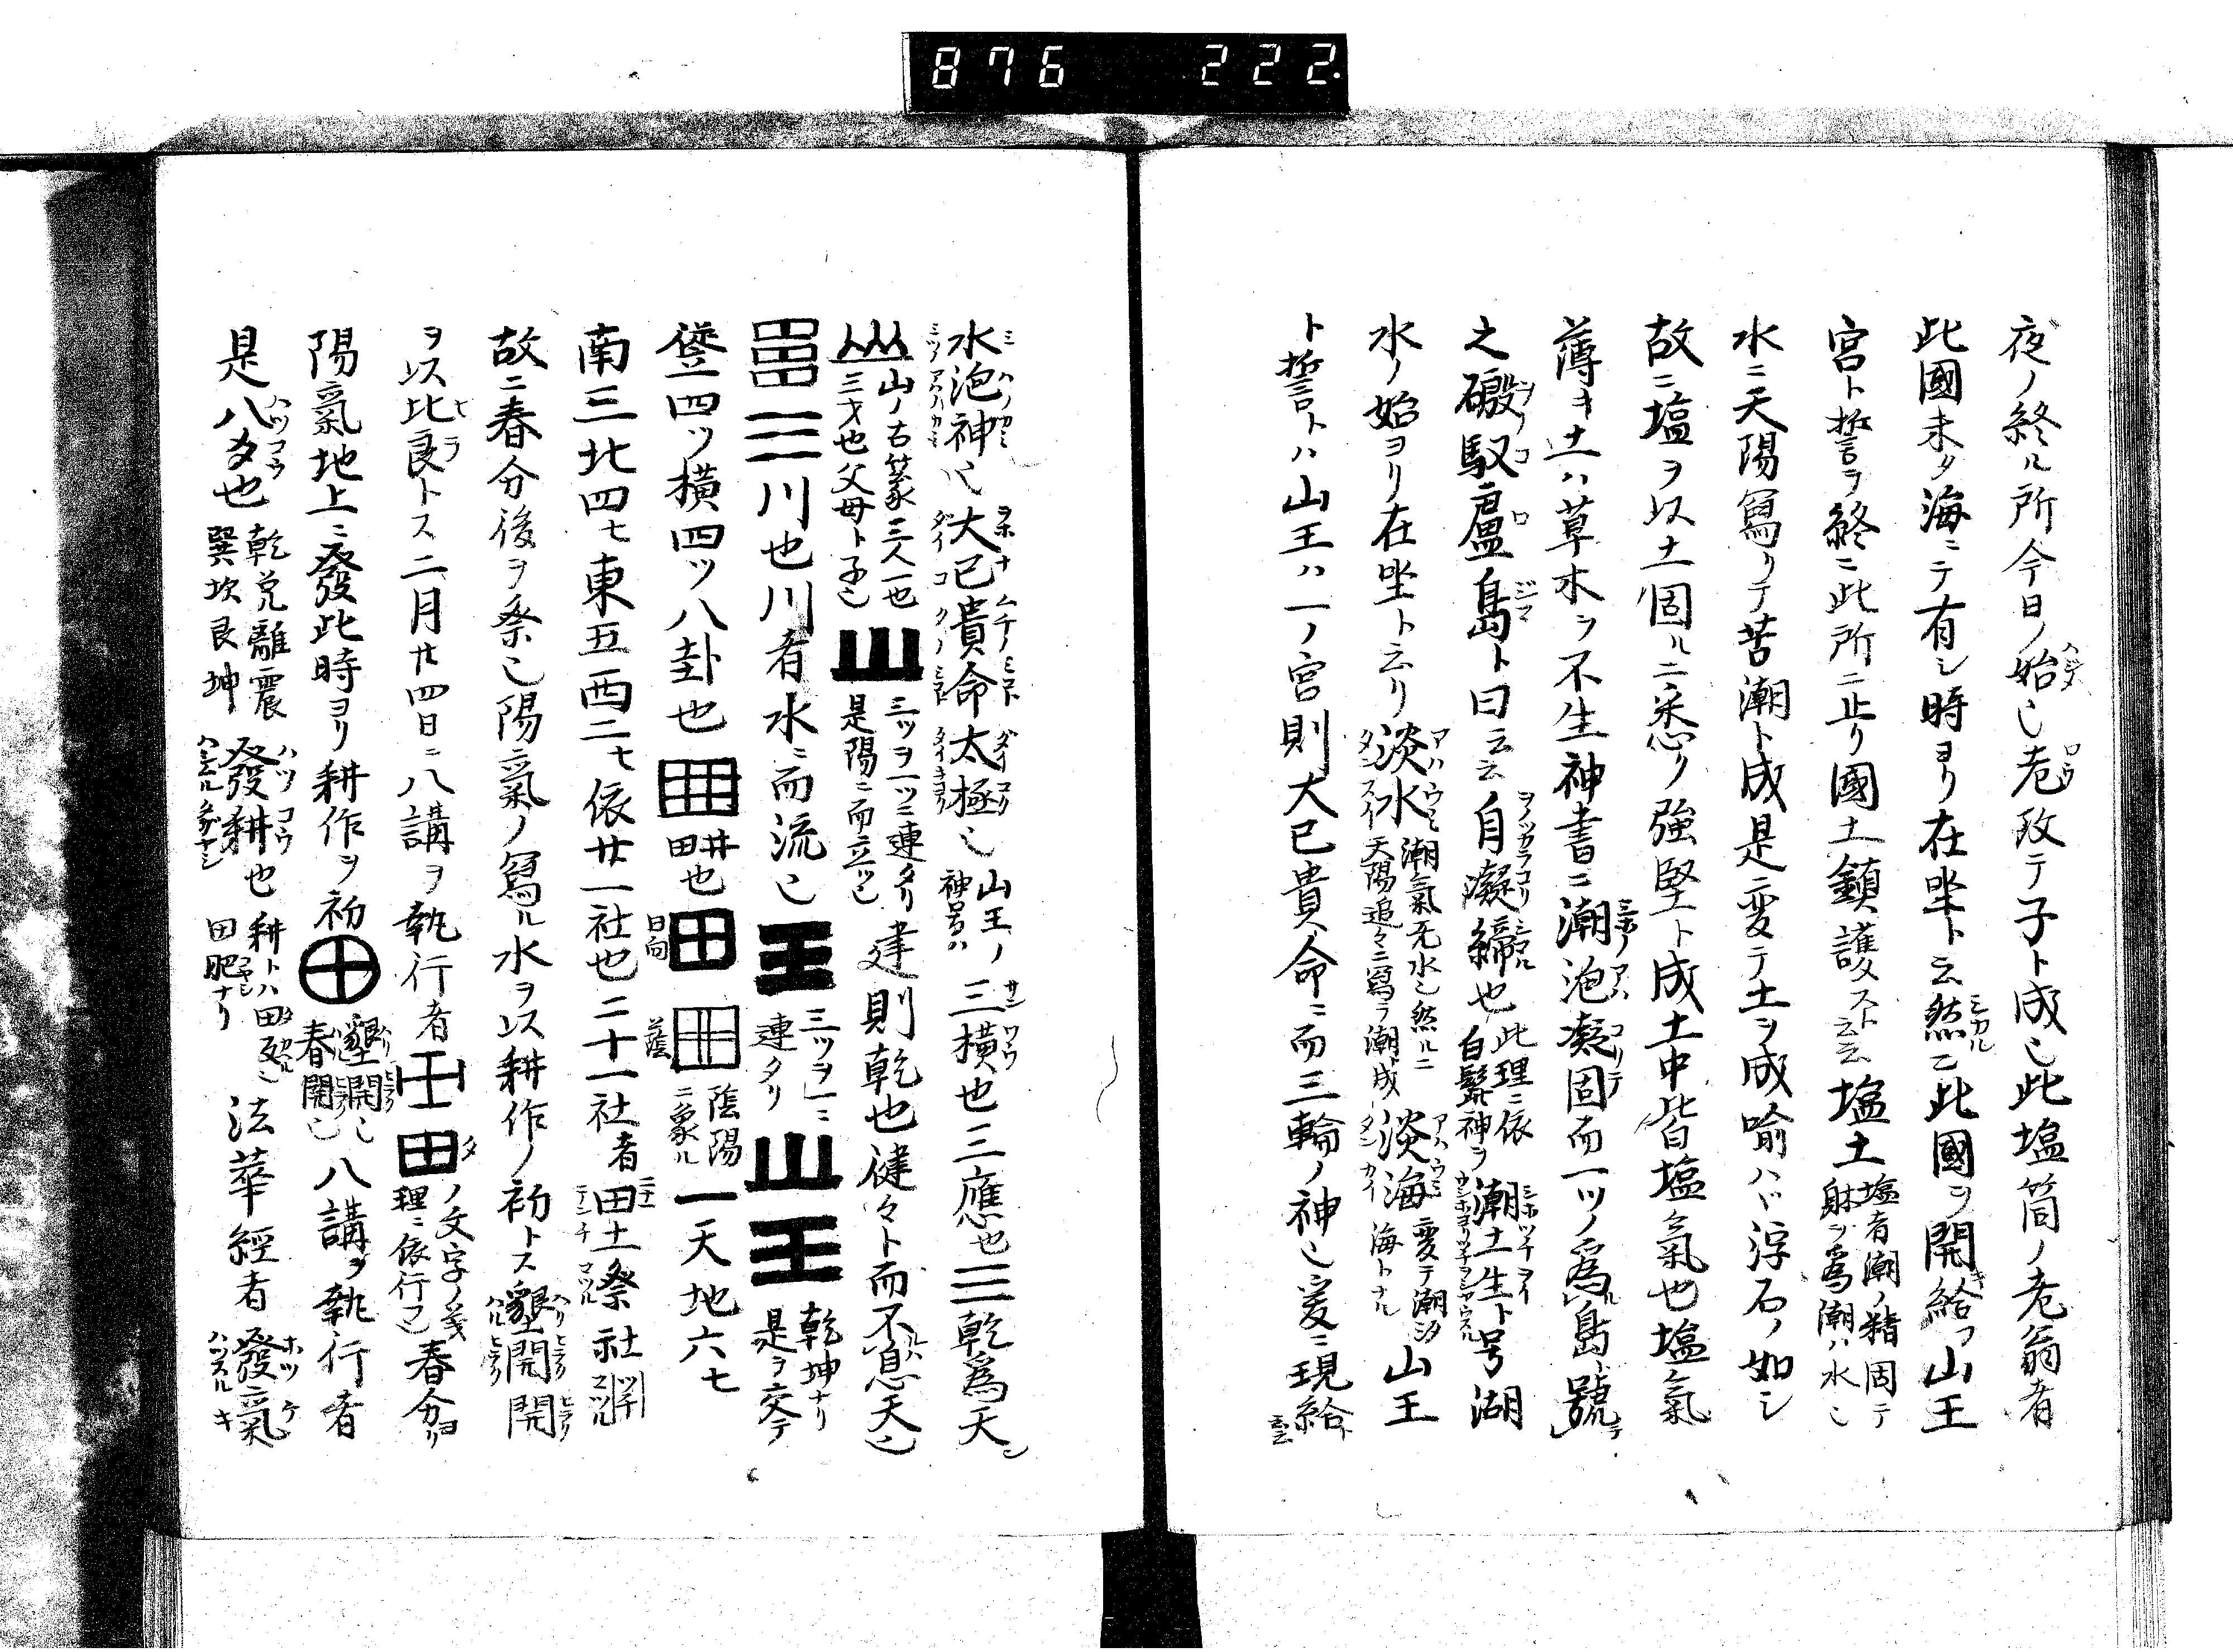 876 222.
夜ノ終ル所今日ノ始也老改テ子ト成也此塩筒ノ老翁者
此國未タ海ニテ有シ時ヨリ在坐ト云然ニ此國ヲ開給フ山王
宮ト誓ヲ終ニ此所ニ止リ國土鎮護スト云云塩土塩者潮ノ精固テ躰ヲ爲潮ハ水也
水ニ天陽寫リテ苦潮ト成是変テ土ヲ成喻ハ浮石ノ如シ
故ニ塩ヲ以土固ルニ悉ク強堅ト成土中皆塩氣也塩氣
薄キ土ハ草木ヲ不生神書ニ潮泡凝固而一ツノ爲島號
之磤馭盧島ト曰云云自凝締也此理ニ依白髭神ヲ潮土生ト号湖
水ノ始ヨリ在坐ト云リ淡水潮氣无水也然ルニ天陽追々ニ寫ラ潮ト成淡海変テ潮海トナル山王
ト誓トハ山王ハ一ノ宮則大已貴命ニ而三輪ノ神也爰ニ現給ト云云
水泡神也大已貴命太極也山王ノ神号ハ三横也三應也三乾爲天也
山ノ古篆三人一也三才也父母ト子也山三ツヲ一ツニ連タリ是陽ニ而立ツ也建則乾也健々ト而不息天也
三川也川者水ニ而流也王三ツヲ一ニ連タリ山王乾坤ナリ是ヲ交テ
竪四ツ横四ツ八卦也井田也田日向陰陽ニ象ル一天地六七
南三北四七東五西二七依廿一社也二十一社者田土祭社
故ニ春分後ヲ祭也陽氣ノ寫ル水ヲ以耕作ノ初トス墾開開
ヲ以比良トス二月廿四日ニ八講ヲ執行者王田ノ文字ノ義理ニ依行フ也春分ヨリ
陽氣地上ニ發此時ヨリ耕作ヲ初墾開也春開也八講ヲ執行者
是八爻也乾兌離震巽坎艮坤發耕也耕トハ田返ル也田肥ナリ法華經者發氣